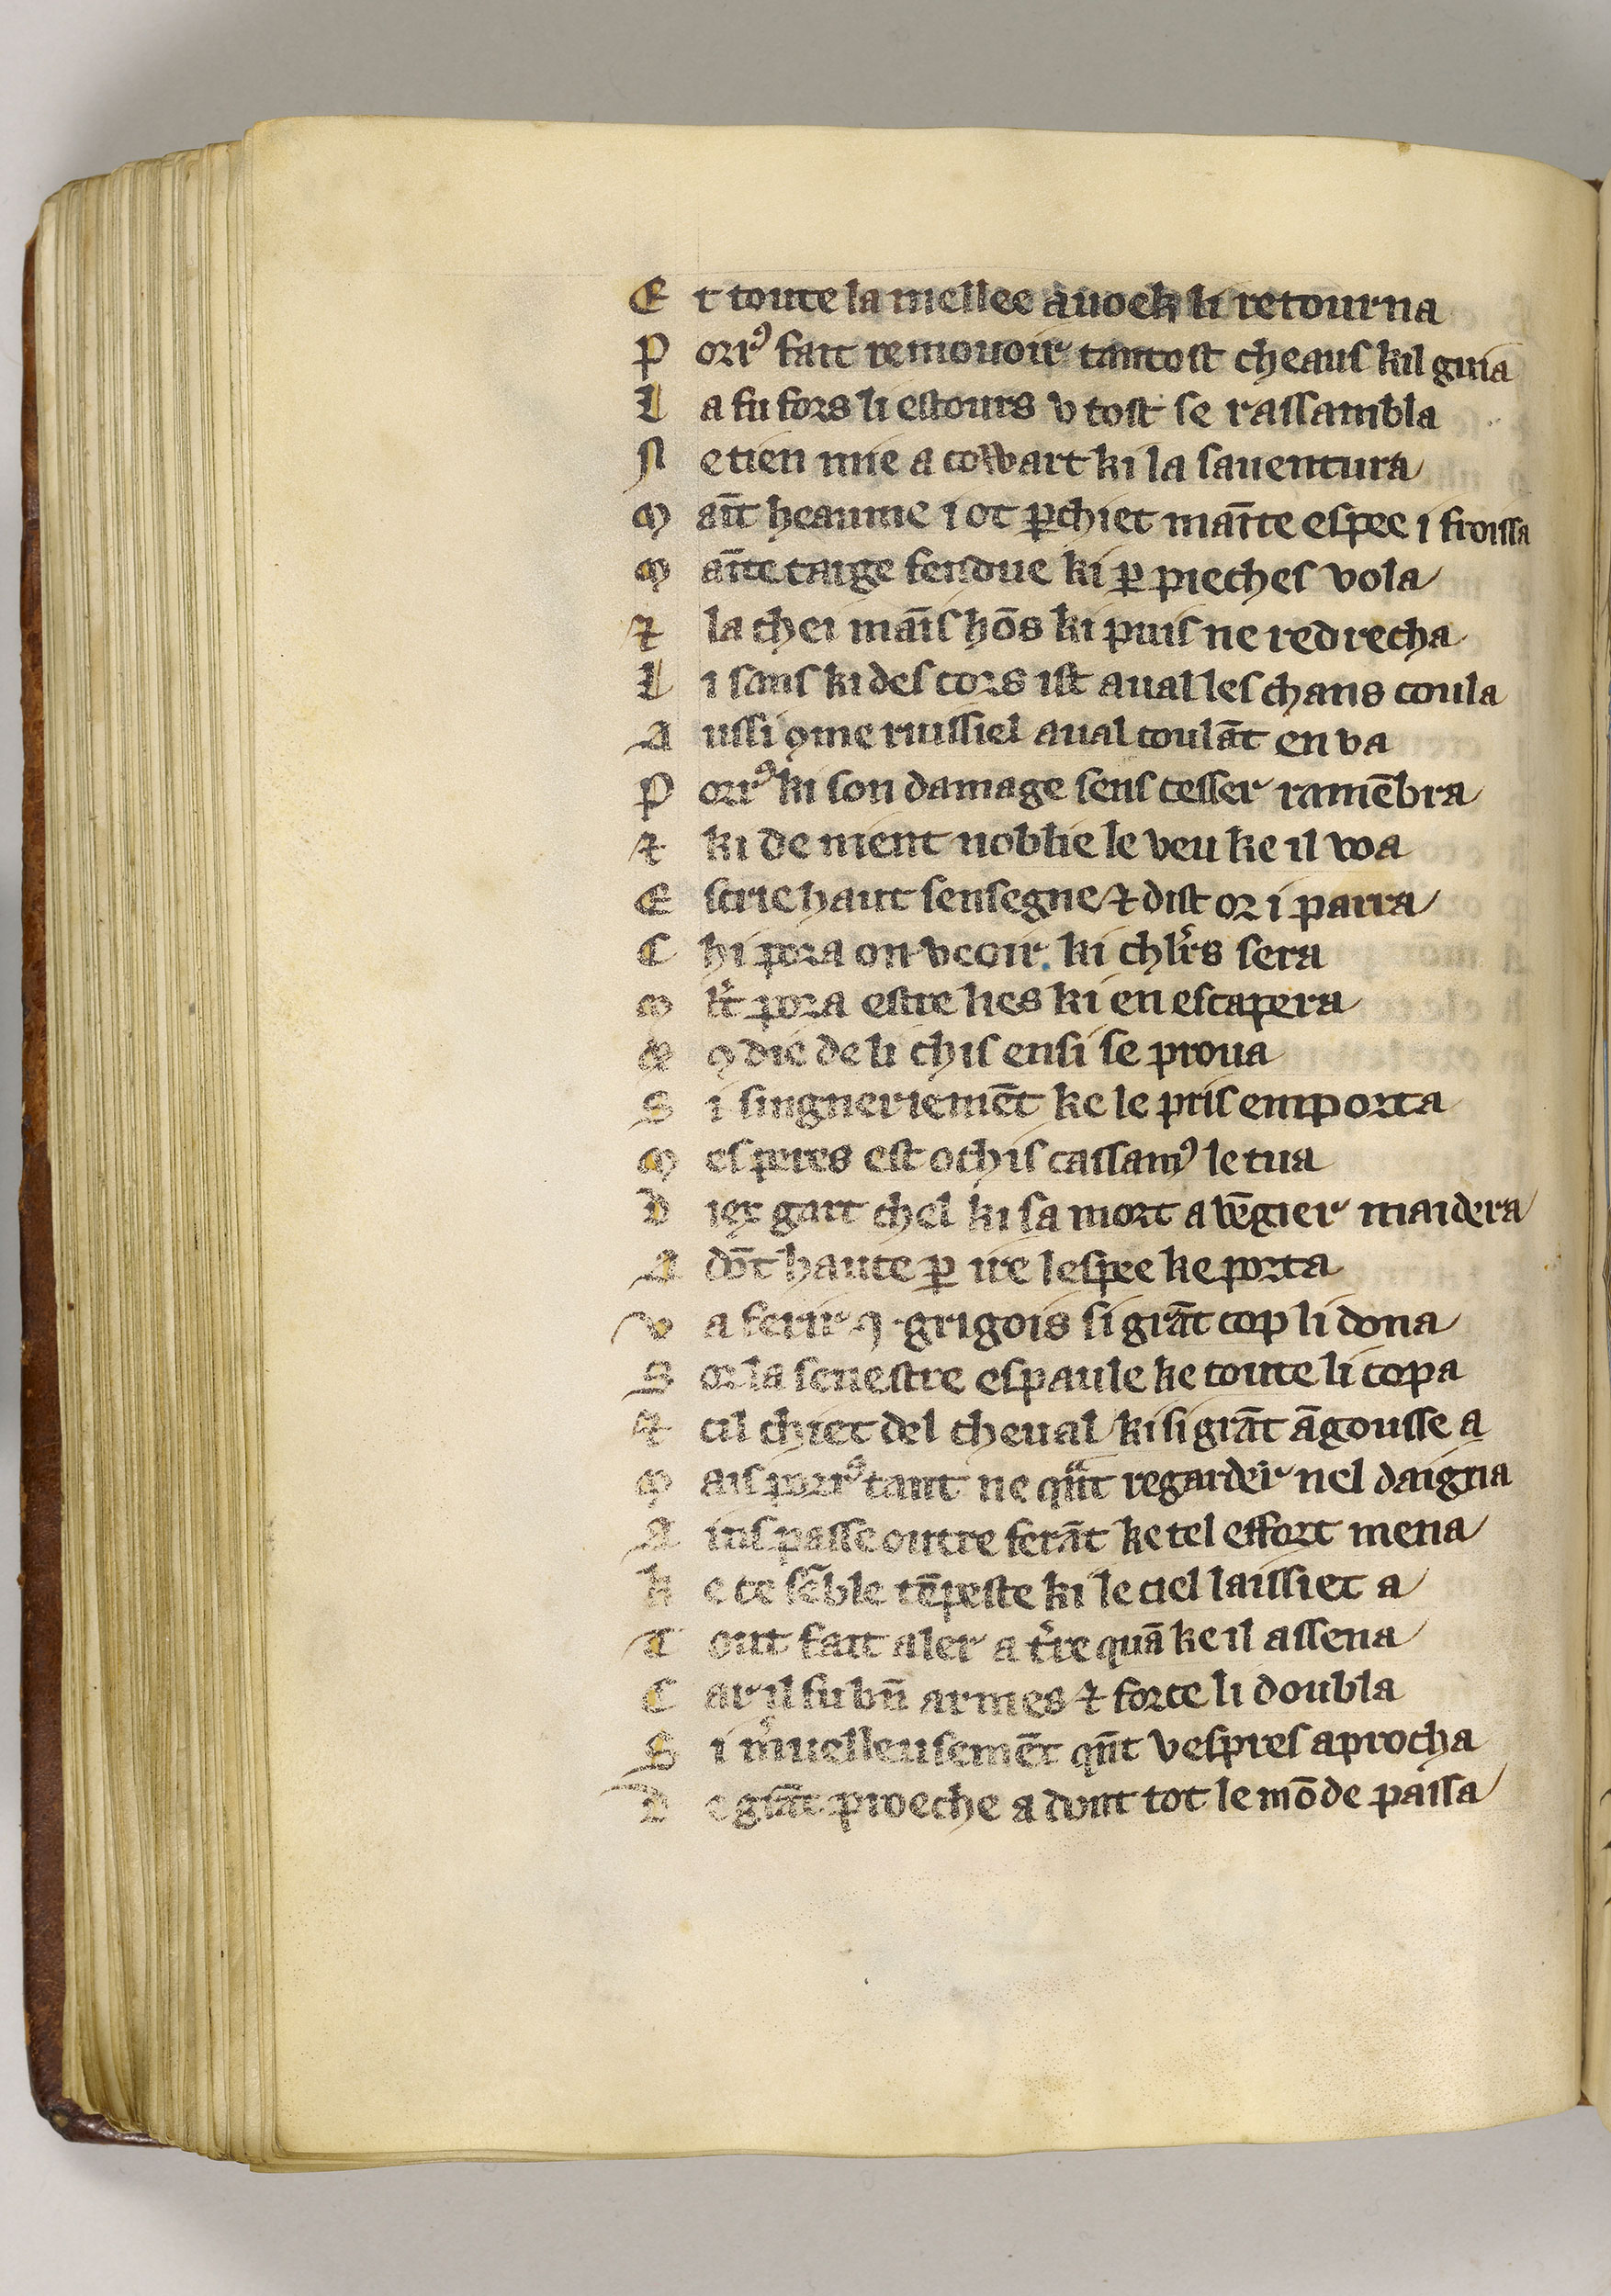 E t toute la mellee auoek li retourna
P orr⁹ fait remouoir tantost cheaus kil guia
L a fu fors li estours v tost se rassambla
N e tien mie a cowart ki la sauentura
M ãt heaume i ot ꝑchiet mãte espee i froissa
M ãte targe fendue ki ꝑ pieches vola
⁊ la chei mãis hõs ki puis ne redrecha
L i sans ki des cors ist aual les chans coula
A ussi ꝯme ruissiel aual coulãt en va
P orr⁹ ki son damage sens cesser ramẽbra
⁊ ki de nient noblie le veu ke il voa
E scrie haut sensegne ⁊ dist or i parra
C hi pora on veoir ki chlr̄s sera
M lt̄ pora estre lies ki en escapera
E ꝯdie de li chis ensi se proua
S i singneriemẽt ke le pris emporta
M es peres est ochis cassam⁹ le tua
D iex gart chel ki sa mort a vẽgier maidera
A dõt hauce ꝑ ire lespee ke porta
V a ferir .i. grigois si grãt cop li dona
S or la senestre espaule ke toute li copa
⁊ cil chiet del cheual ki si grãt ãgousse a
M ais porr⁹ tant ne qᵃ̃t regarder nel daigna
A ins passe outre ferãt ke tel effort mena
K e ce sẽble tẽpeste ki le ciel laissiet a
T out fait aler a t̾re quã ke il assena
C ar il fu bñ armes ⁊ force li doubla
S i m̾uelleusemẽt qñt vespres aprocha
D e grãt proeche a dont tot le mõde passa